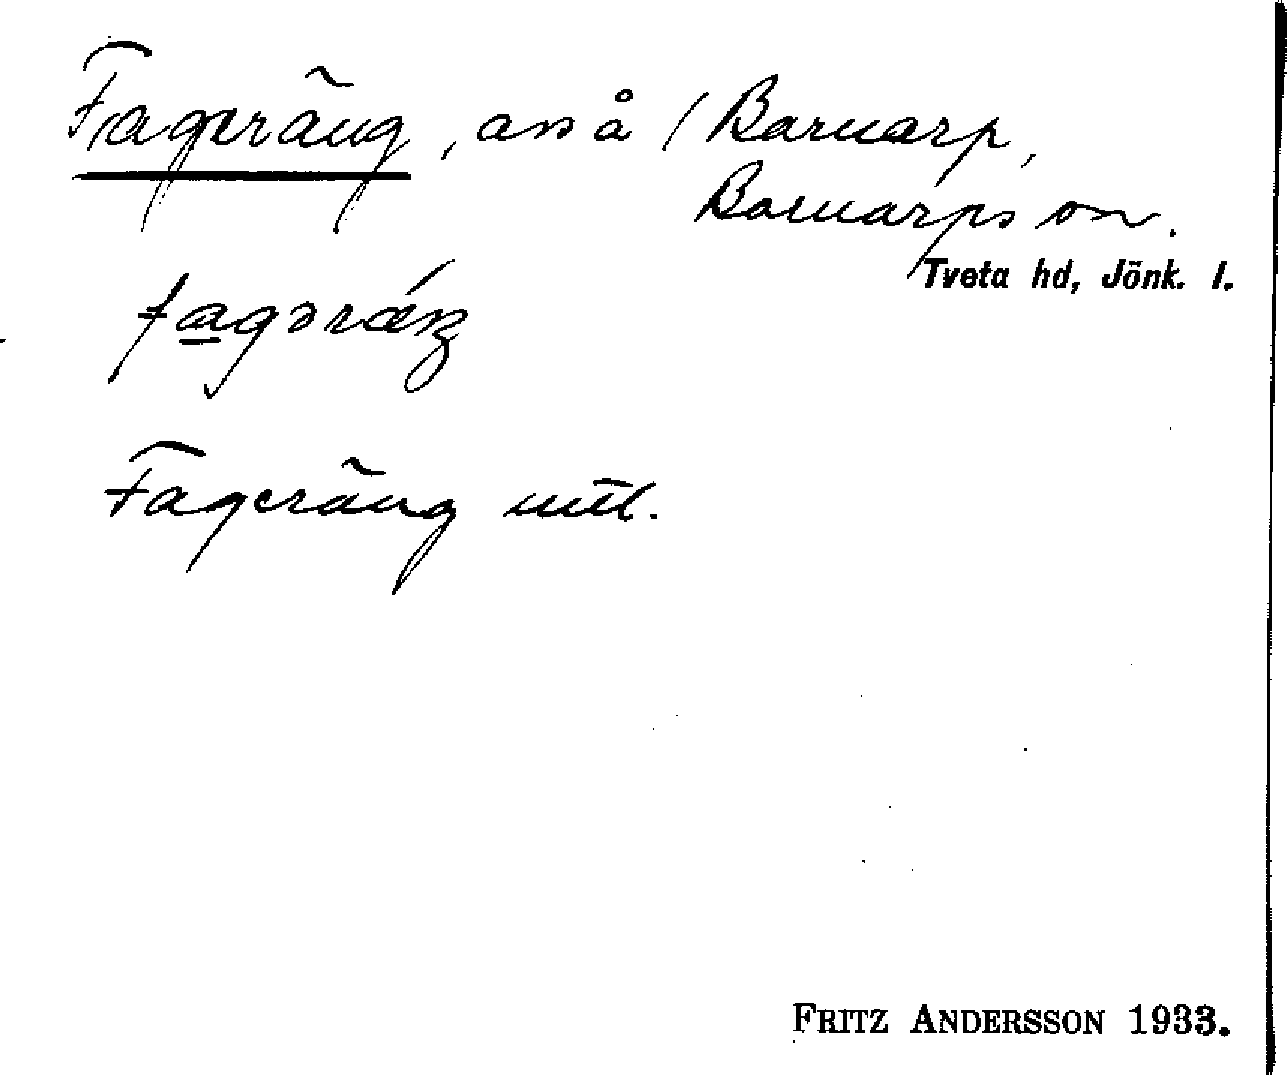 Fageräng, ass å / Barnarp,
Barnarps sn.
Tveta hd, Jönk. l.
fagəräŋ
Fageräng mtl.
FRITZ ANDERSSON 1933.